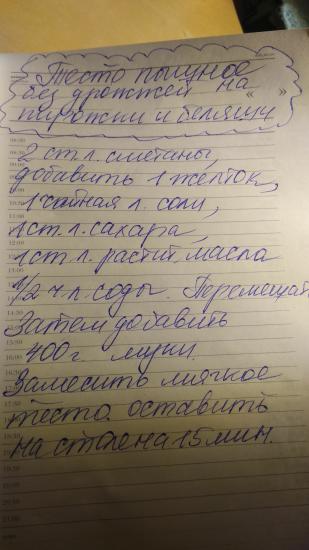 Тесто пышное
без дрожжей на
пирожки и беляши
2 ст. л. сметаны,
добавить 1 желток,
1 чайная л. соли,
1 ст. л. сахара,
1 ст. л. растит. масла
1/2 ч л. соды. Перемешат
Затем добавить
400 г. муки.
Замесить мягкое
тесто. оставить
на столе на 15 мин.